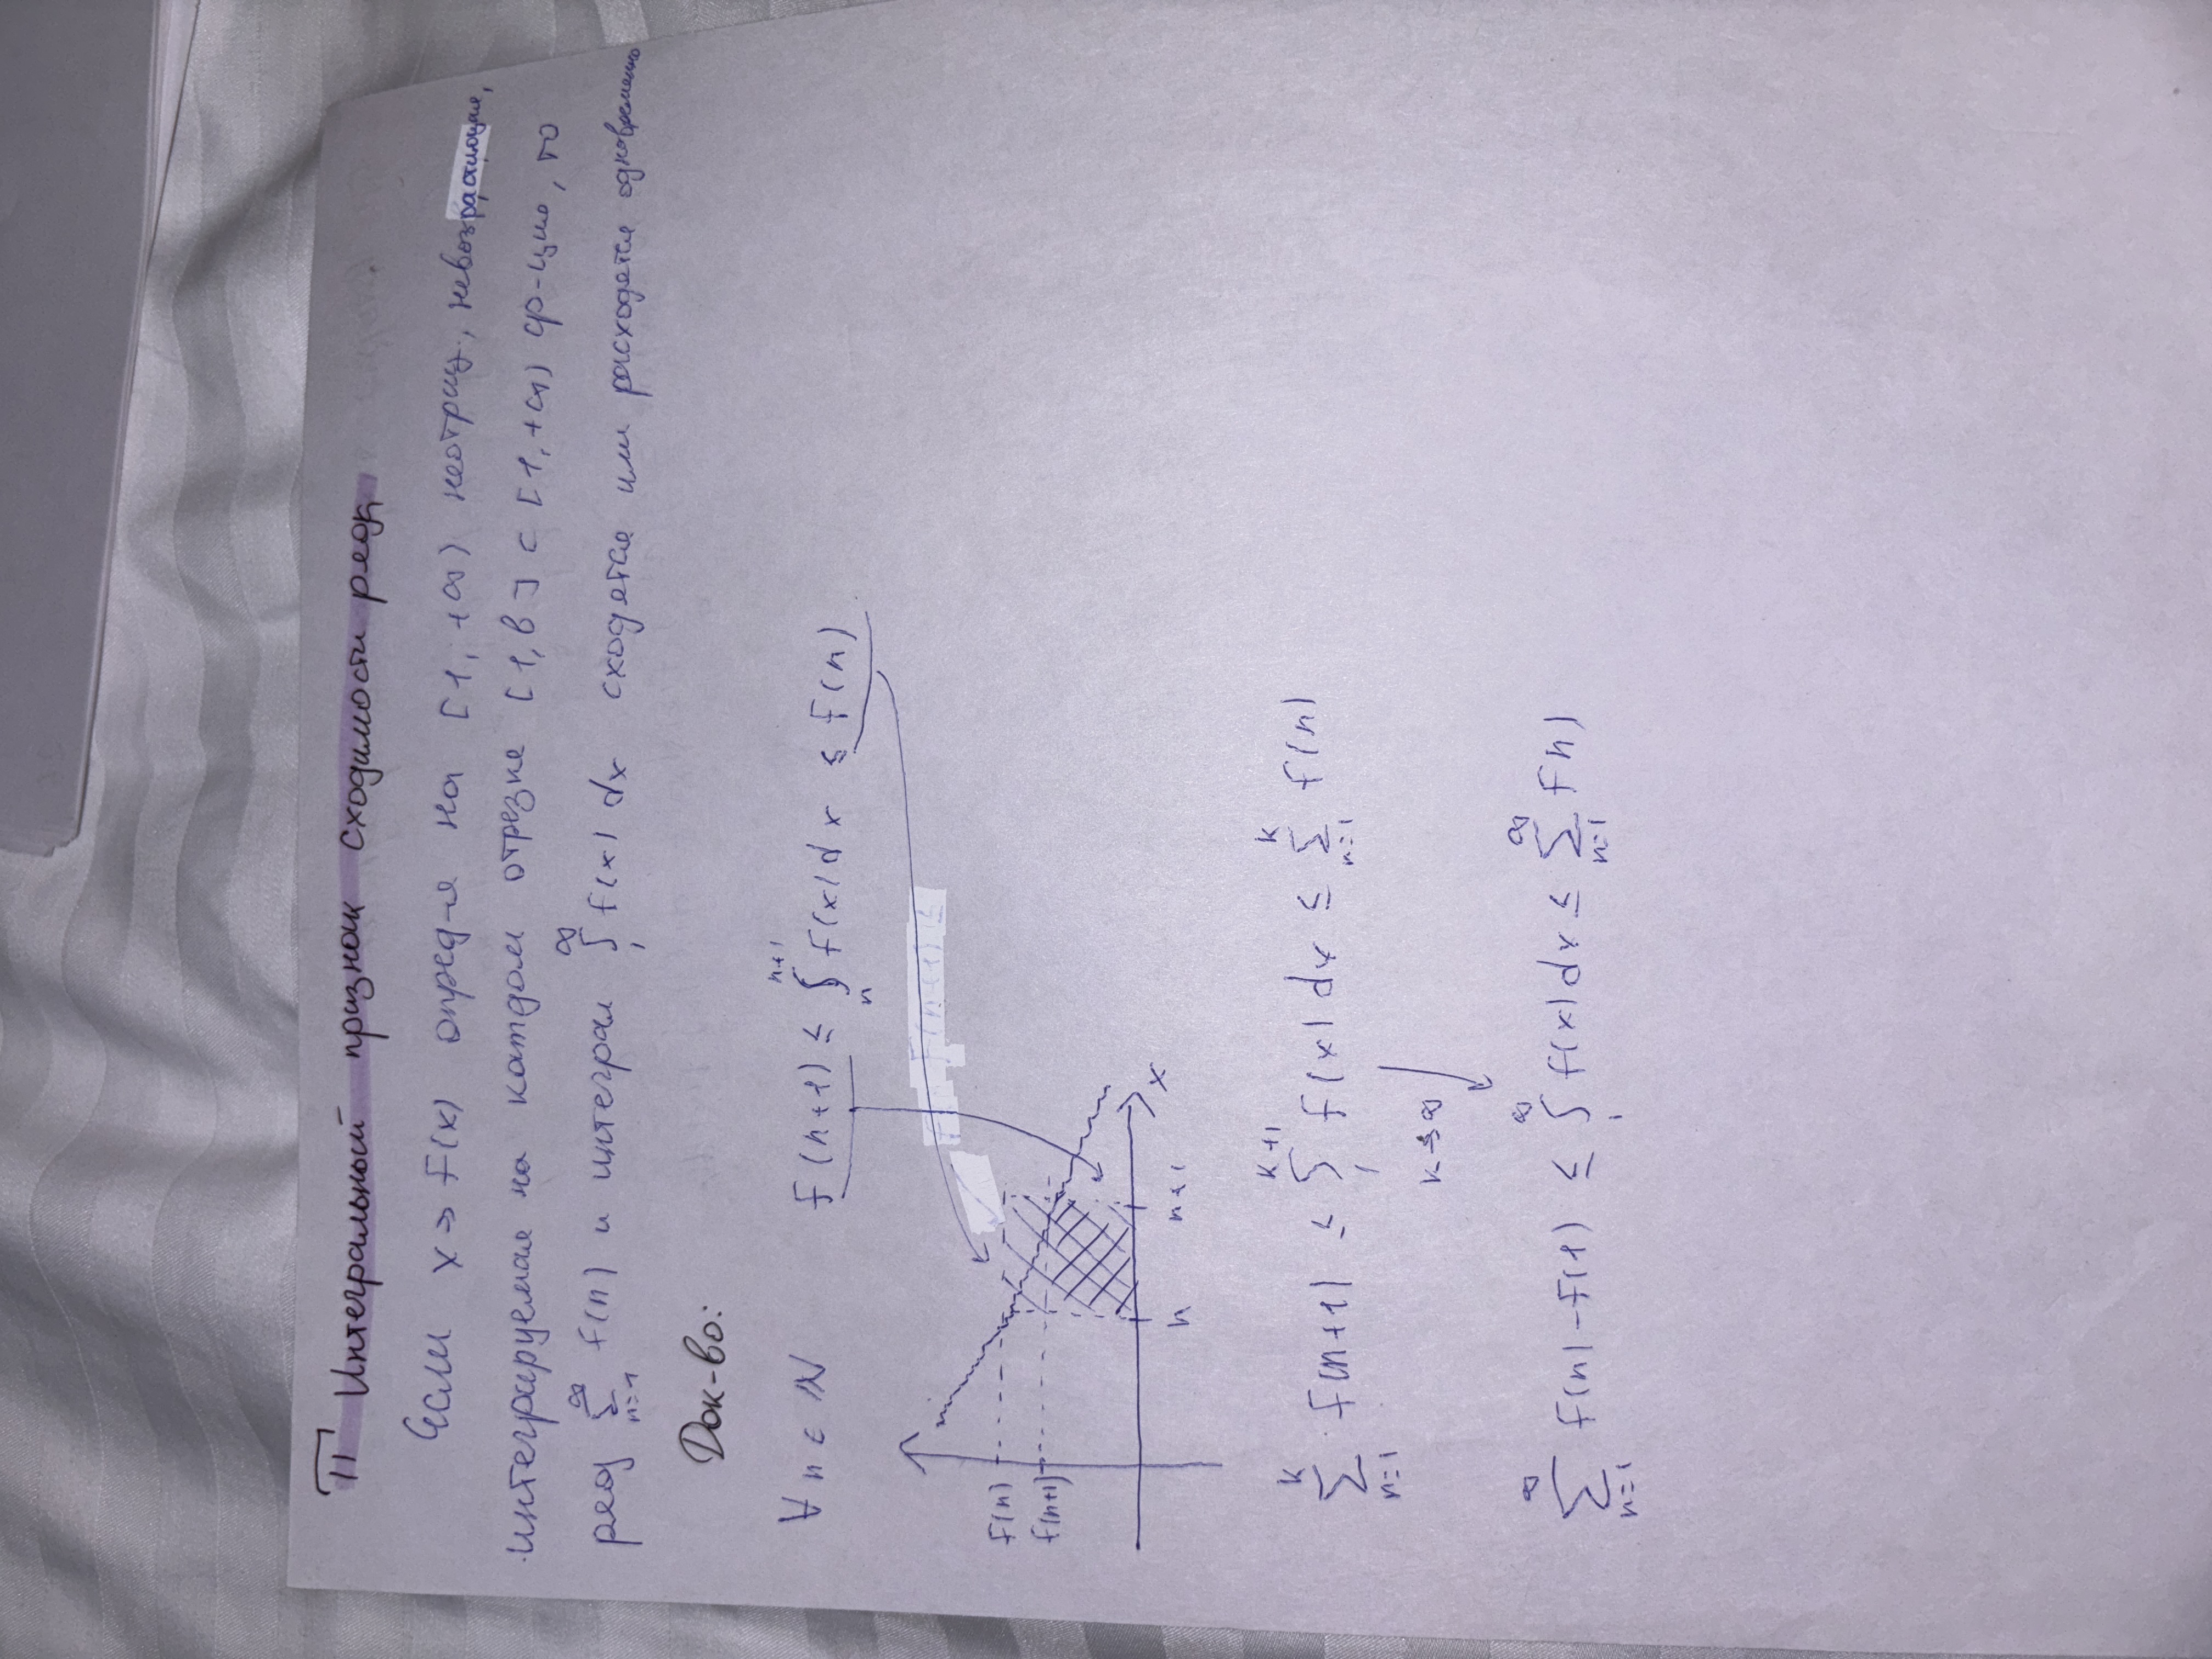 П Интегральный признак сходимости ряда
Если x → f(x) опред-я на [1, +∞) неотриц., невозрастающая,
интегрируемая на каждом отрезке [1, b] ⊂ [1, +∞) ф-ция, то
ряд ∞ Σ n=1 f(n) и интеграл ∞ ∫ 1 f(x) dx сходятся или расходятся одновременно
Док-во:
∀ n ∈ ℕ f(n+1) ≤ n+1 ∫ n f(x) dx ≤ f(n)
f(n+1) ≤
f(n)
f(n+1)
n n+1 x
k Σ n=1 f(n+1) ≤ k+1 ∫ 1 f(x) dx ≤ k Σ n=1 f(n)
k → ∞
∞ Σ n=1 f(n) - f(1) ≤ ∞ ∫ 1 f(x) dx ≤ ∞ Σ n=1 f n)